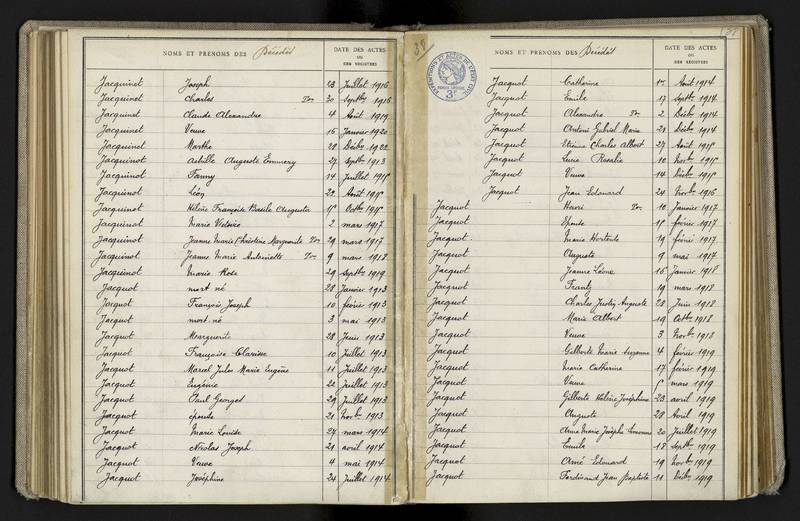 NOMS ET PRENOMS DES Décédés
DATE DES ACTES
OU
DES REGISTRES
Jacquinet Joseph 23 Juillet 1916
Jacquinet Charles Ton 30 Septbre 1916
Jacquinet Claude Alexandre 4 Août 1919
Jacquinet Veuve 16 Janvier 1920
Jacquinet Marthe 28 Décbre 1922
Jacquinot Achille Auguste Emmery 27 Septbre 1913
Jacquinot Fanny 14 Juillet 1915
Jacquinot Léon 22 Août 1915
Jacquinot Hélène Françoise Basile Augusta 15 Octbre 1915
Jacquinot Marie Victoire 2 mars 1917
Jacquinot Jeanne Marie Christine Marguerite Ton 29 mars 1917
Jacquinot Jeanne Marie Antoinette Ton 9 mars 1918
Jacquinot Marie Rose 29 Septbre 1919
Jacquot mort né 28 Janvier 1913
Jacquot François Joseph 10 février 1913
Jacquot mort né 3 mai 1913
Jacquot Marguerite 28 Juin 1913
Jacquot Françoise Clarisse 10 Juillet 1913
Jacquot Marcel Jules Marie Eugène 11 Juillet 1913
Jacquot Eugénie 22 Juillet 1913
Jacquot Paul Georges 29 Juillet 1913
Jacquot épouse 21 Novbre 1913
Jacquot Marie Louise 27 mars 1914
Jacquot Nicolas Joseph 21 avril 1914
Jacquot Veuve 4 mai 1914
Jacquot Joséphine 24 Juillet 1914
38
NOMS ET PRENOMS DES Décédés
DATE DES ACTES
OU
DES REGISTRES
Jacquot Catherine 1er Août 1914
Jacquot Emile 17 Septbre 1914
Jacquot Alexandre Ton 2 Décbre 1914
Jacquot Antoine Gabriel Marie 21 Décbre 1914
Jacquot Etienne Charles Albert 27 Août 1915
Jacquot Lucie Rosalie 10 Novbre 1915
Jacquot Veuve 14 Décbre 1915
Jacquot Jean Edouard 24 Novbre 1916
Jacquot Henri Ton 10 Janvier 1917
Jacquot Epouse 15 février 1917
Jacquot Marie Hortense 19 février 1917
Jacquot Auguste 9 mai 1917
Jacquot Jeanne Léonie 16 Janvier 1918
Jacquot Frantz 19 mars 1918
Jacquot Charles Justin Auguste 28 Juin 1918
Jacquot Marie Albert 19 Octbre 1918
Jacquot Veuve 3 Novbre 1918
Jacquot Gilberte Marie Suzanne 4 février 1919
Jacquot Marie Catherine 17 février 1919
Jacquot Veuve 5 mars 1919
Jacquot Gilberte Hélène Joséphine 23 avril 1919
Jacquot Auguste 28 Avril 1919
Jacquot Anne Marie Joséphe 20 Juillet 1919
Jacquot Emile 18 Septbre 1919
Jacquot Aimé Edouard 19 Novbre 1919
Jacquot Ferdinand Jean Baptiste 11 Décbre 1919